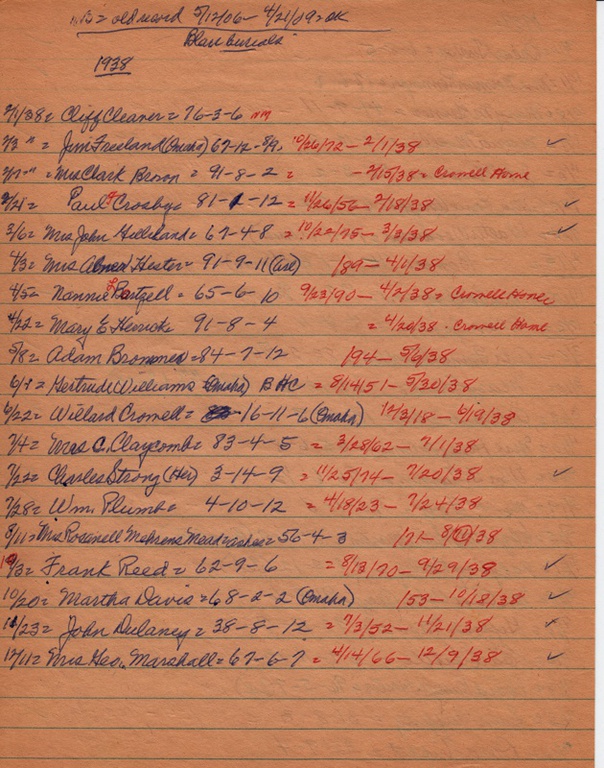 "B" = old record 5/12/06 - 4/21/09 = OK
Blair burials
1938
2/1/38 = Cliff Cleaner = 76-3-6 nm
2/3 " = Jim Freeland (Omaha) 67-12-8/9, 10/26/72 - 2/1/38 ✓
2/17 " = Mrs Clark Brown = 91-8-2 = - 2/15/38 = Crowell Home
2/21 = Paul Crosby = 81-1-12 = 11/26/56 - 2/18/38 ✓
3/6 = Mrs John Gilliland = 67-4-8 = 10/22/75 - 3/3/38 ✓
4/3 = Mrs Hester = 91-9-11 /89 - 4/1/38
4/5 = Nannie Rotzell = 65-6-10 9/23/90 - 4/2/38 = Crowell Home
4/22 = Mary E Herrick 91-8-4 = 4/20/38 - Crowell Home
5/8 = Adam = 84-7-12 /94 - 5/6/38
6/1 = Gertrude Williams (Omaha) BHC = 8/14/51 - 5/30/38
6/22 = Willard Crowell = 16-11-6 (Omaha) 12/3/18 - 6/19/38
7/4 = Mrs C. Claycomb = 83-4-5 = 3/28/62 - 7/1/38
7/22 = Charles Strong (Her) 3-14-9 = 11/25/74 - 7/20/38 ✓
7/28 = Wm. Plumb = 4-10-12 = 4/18/23 - 7/24/38
8/11 = Mrs Mehrens Mead = ashes = 56-4-3 /71 - 8/10/38
10/3 = Frank Reed = 62-9-6 = 8/13/70 - 9/29/38 ✓
10/20 = Martha Davis = 68-2-2 (Omaha) /53 - 10/18/38 ✓
11/23 = John Dulaney = 38-8-12 = 7/3/52 - 11/21/38 ✓
12/11 = Mrs Geo. Marshall = 67-6-7 = 4/14/66 - 12/9/38 ✓